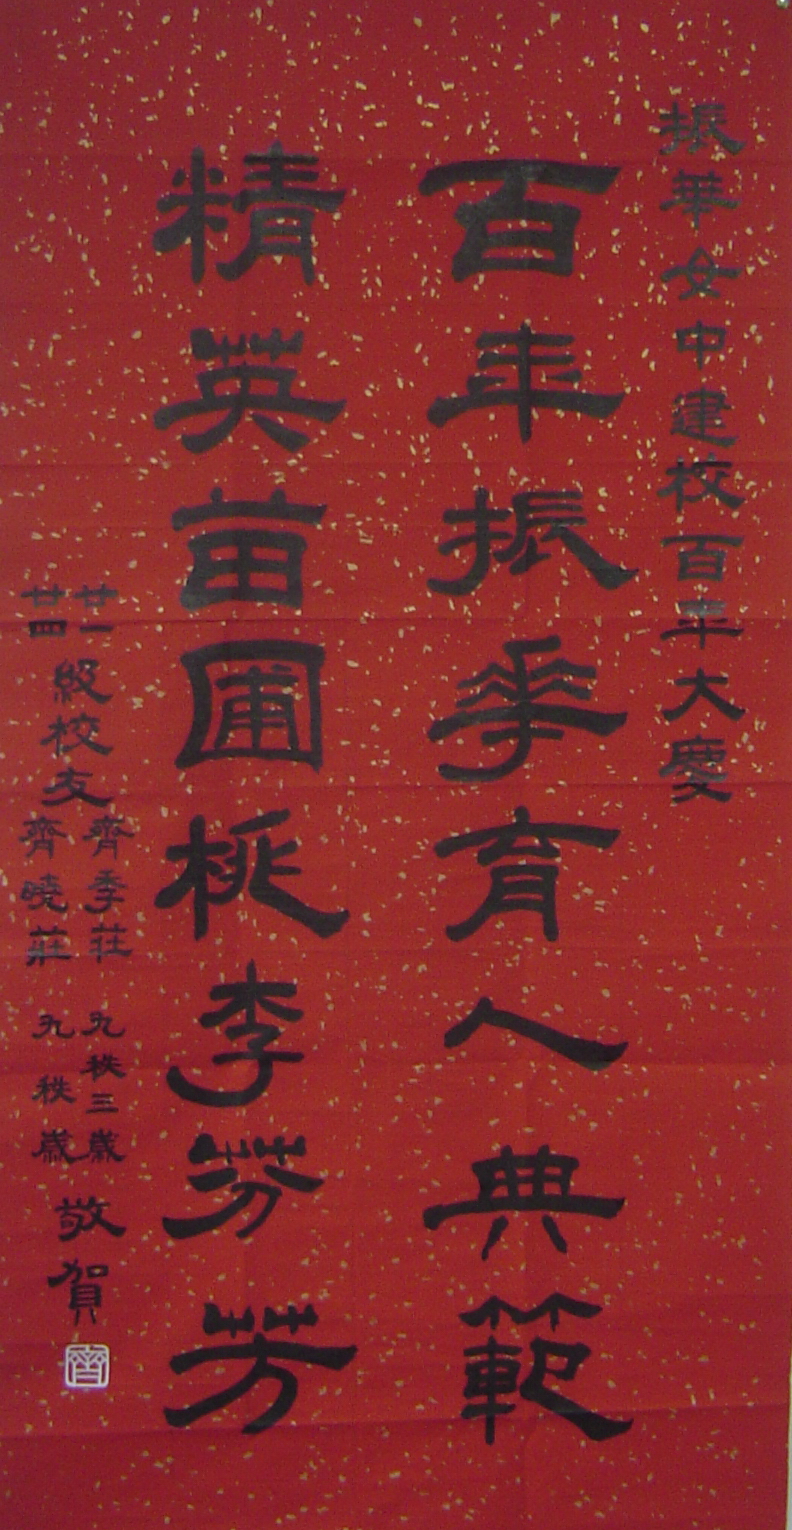 振華女中建校百年大慶
百年振華育人典範
精英苗圃桃李芬芳
廿一
廿四
級校友
齊季莊 九秩三歲
齊曉莊 九秩歲
敬賀
齊